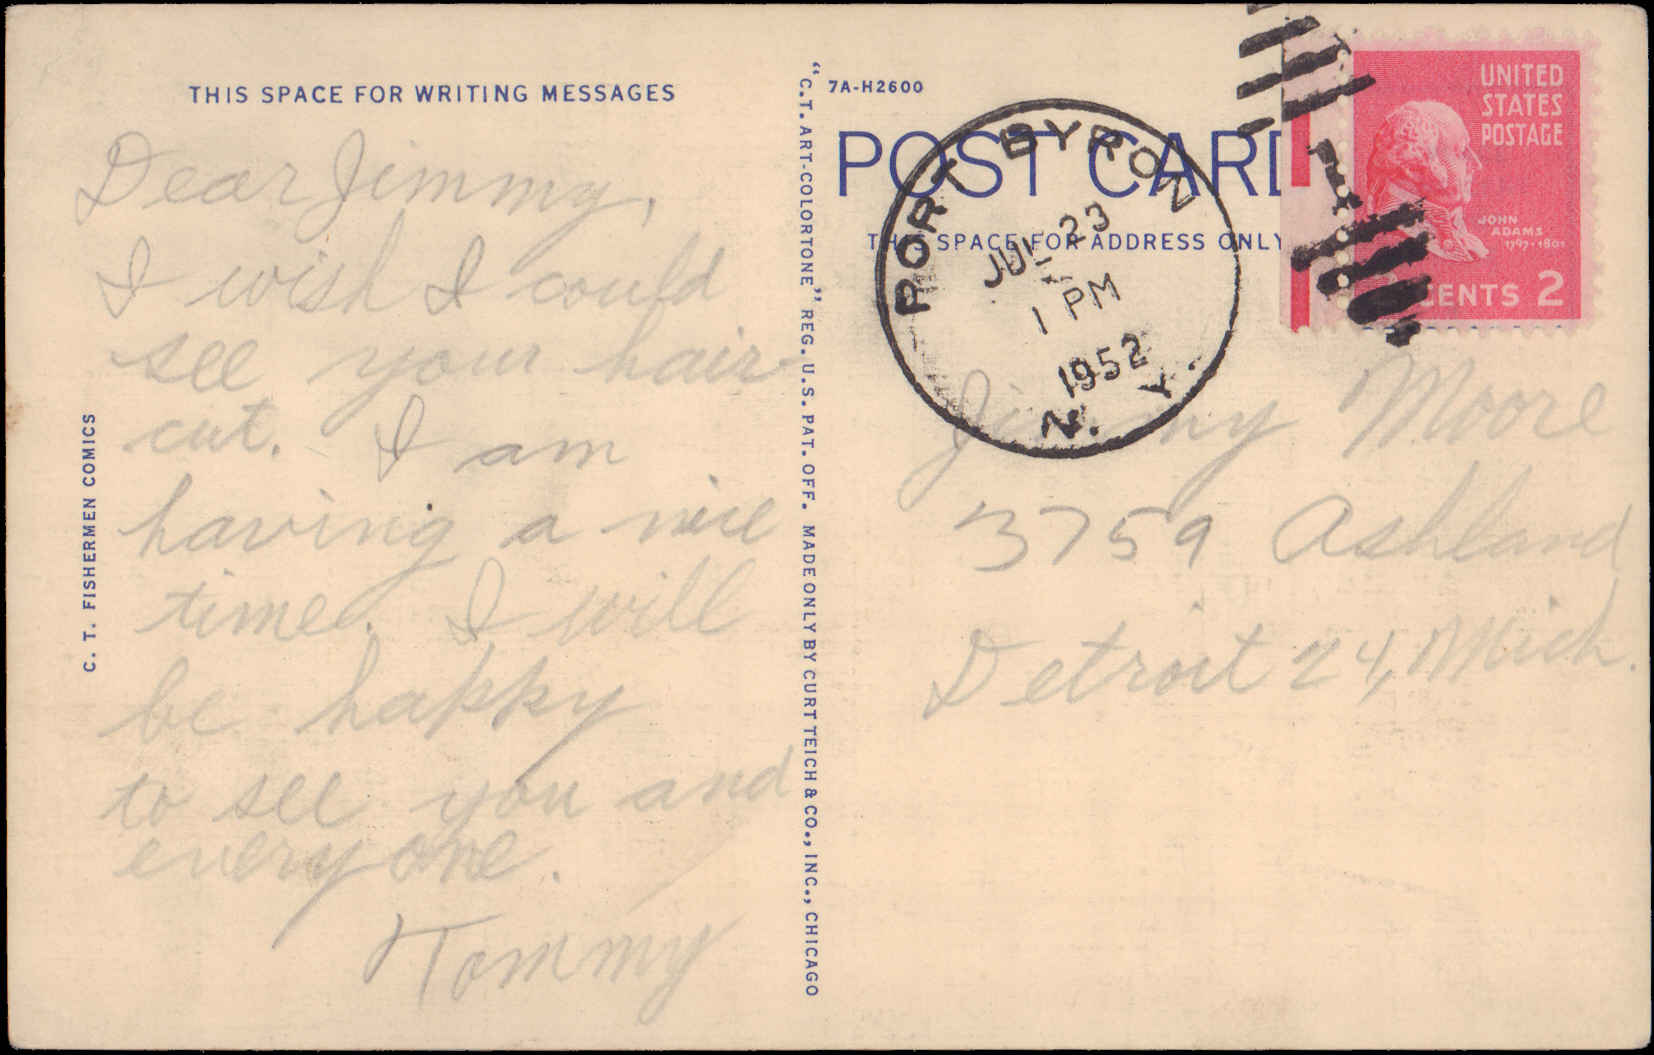 THIS SPACE FOR WRITING MESSAGES
Dear Jimmy,
I wish I could
see your hair
cut. I am
having a nice
time. I will
be happy
to see you and
everyone.
Tommy
C. T. FISHERMEN COMICS
"C.T. ART-COLORTONE" REG. U.S. PAT. OFF. MADE ONLY BY CURT TEICH & CO., INC., CHICAGO
7A-H2600
POST CARD
THIS SPACE FOR ADDRESS ONLY
PORT BYRON
JUL 23
1 PM
1952
N. Y.
UNITED
STATES
POSTAGE
JOHN
ADAMS
1797-1801
CENTS 2
Jimmy Moore
3759 Ashland
Detroit 24, Mich.